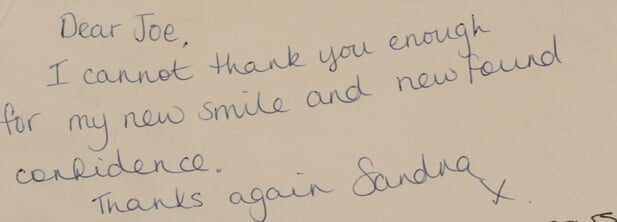 Dear Joe,
I cannot thank you enough
for my new smile and new found
confidence.
Thanks again Sandra x.